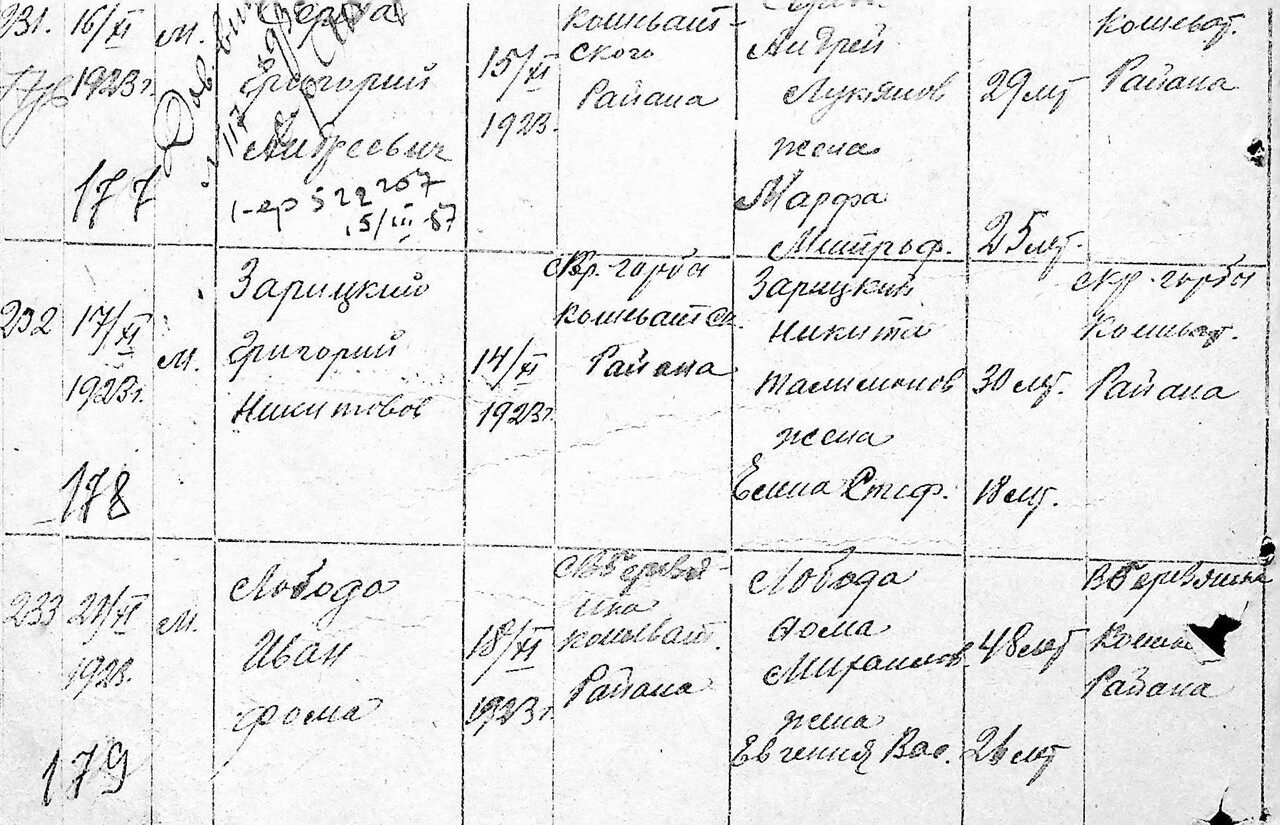 231. 16/XI 1923г. м.
177
Григорий
Андреевич
1-ер 522257
15/III 87
15/XI
1923.
Кошеват-
ского
Района
Андрей
Лукянов 29 лет
жена
Марфа
Митроф. 25 лет.
Кошеват.
Района
232 17/XI
1923г.
м.
178
Зарицкий
Григорий
Никитовов
14/XI
1923г.
Кошеватск.
Района
Зарицкий
Никита
Талимонов 30 лет.
жена
Елена Стеф. 18 лет.
скр-горбы
Кошеват.
Района
233 21/XI
1923.
м.
179
Лобода
Иван
Фома
18/XI
1923г.
Кошеват.
Района
Лобода
Фома
Михаилов. 48 лет
жена
Евгения Вас. 26 лет
Района